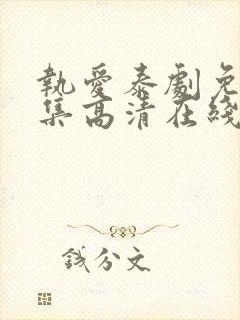 執愛泰劇免
集高清在綫
錢分文